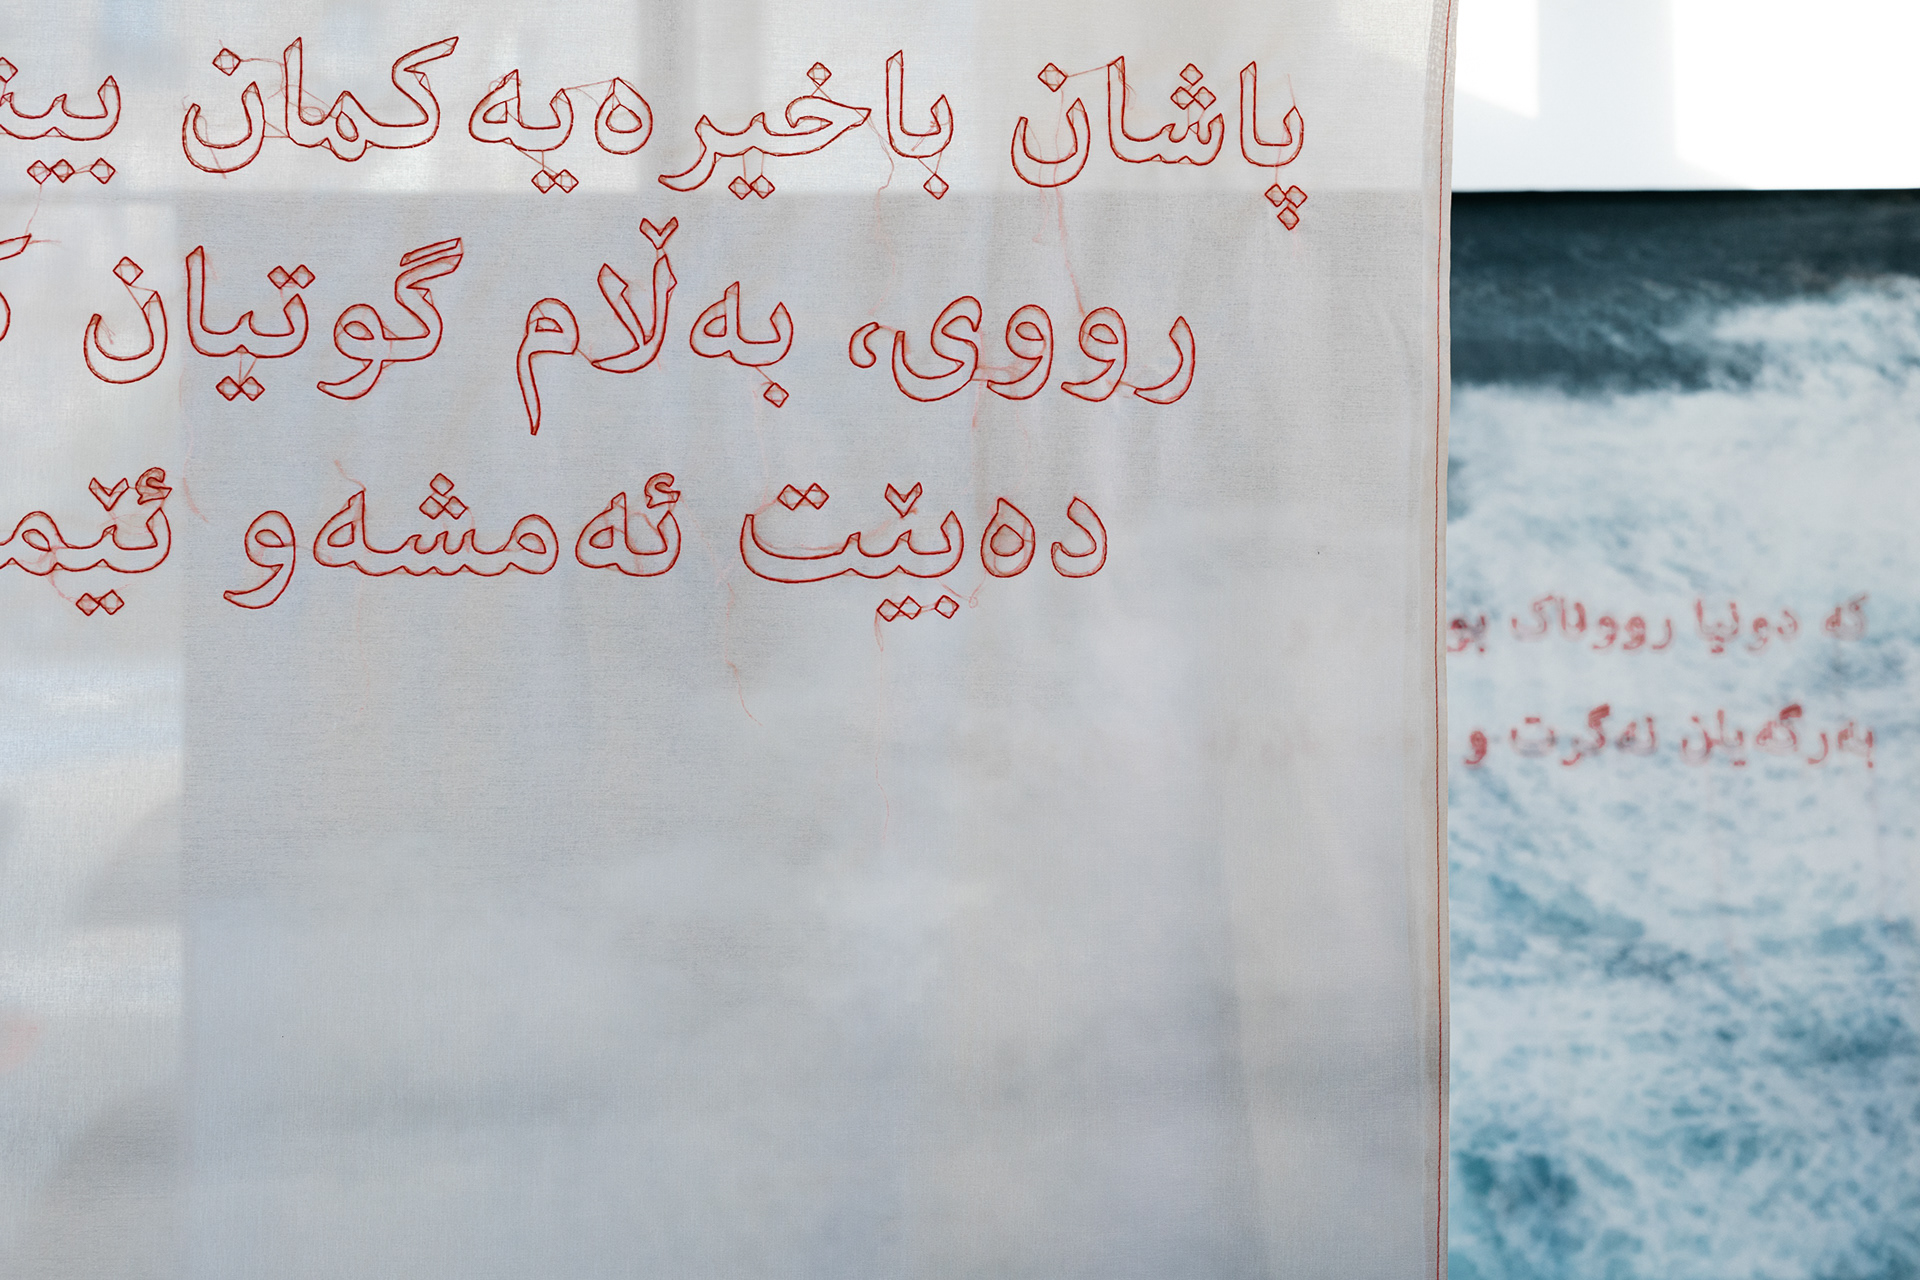 پاشان باخیرەیەکمان
رووی، بەڵام گوتیان
دەبێت ئەمشەو
کە دونیا رووناک
بەرگەیان نەگرت و